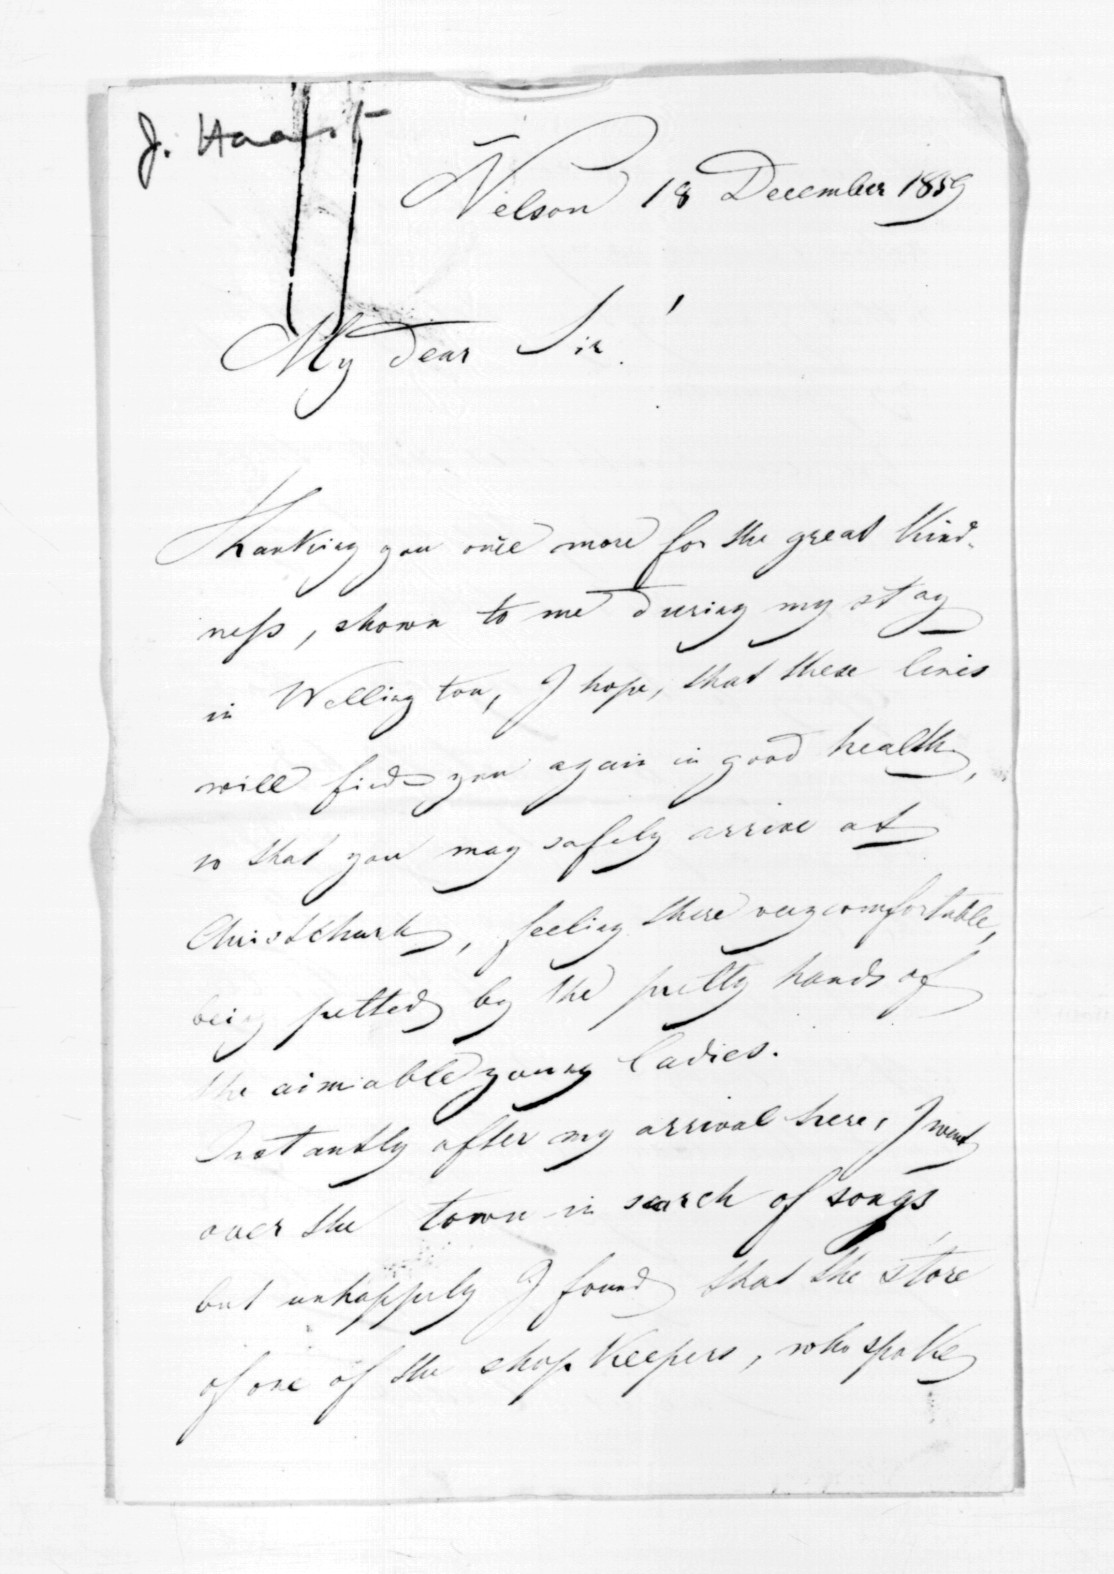 J. Haast
Nelson 18 December 1859
My dear Sir!
Thanking you once more for the great kind-
ness, shown to me during my stay
in Wellington, I hope, that these lines
will find you again in good health,
so that you may safely arrive at
Christchurch, feeling there very comfortable,
being petted by the pretty hands of
the aimiable young ladies.
Instantly after my arrival here, I went
over the town in search of songs
but unhappily I found that the store
of one of the shop keepers, who spoke